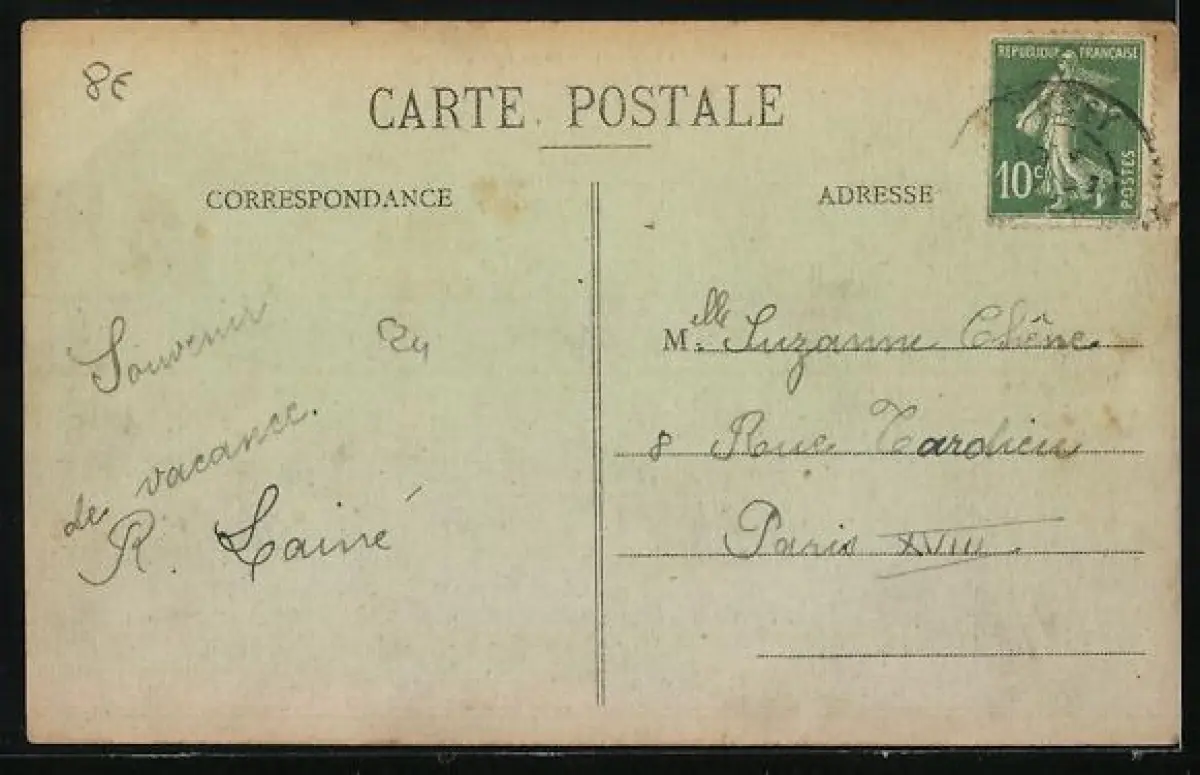 8€
CARTE POSTALE
RÉPUBLIQUE FRANÇAISE
10c
POSTES
CORRESPONDANCE
ADRESSE
Souvenir
24
de vacance.
R. Lainé
Melle Suzanne Chêne
8 Rue Tardieu
Paris XVIII